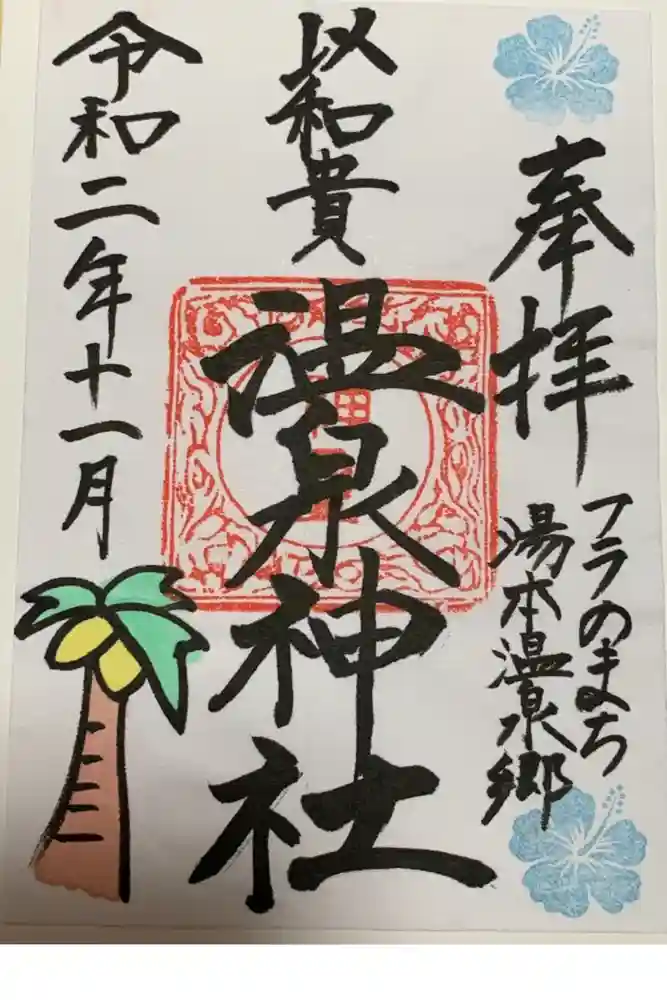 奉拝
フラのまち
湯本温泉郷
以和貴
温泉神社
令和二年十一月